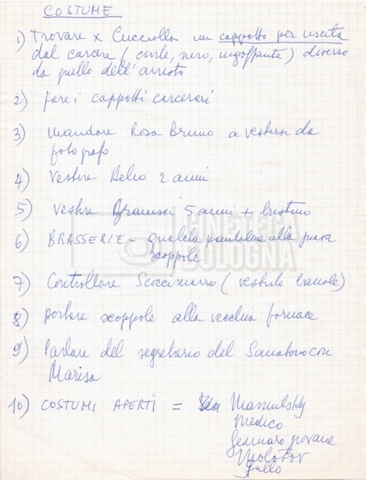 COSTUME
1) Trovare x Cucciolla un cappotto per uscita
dal carcere (civile, nero, ingoffante) diverso
da quello dell'arresto
2) fare i cappotti carcerari
3) Mandare Rosa Bruno a vestirsi da
fotografo
4) Vestire Delio 2 anni
5) Vestire Gramsci 5 anni + bustino
6) BRASSERIE qualche pantalone alla zuava
scoppole
7) Controllare Scoccimarro (vestito)
8) Portare scoppole alla vecchia fornace
9) Parlare del segretario del Sanatorio con
Marisa
10) COSTUMI APERTI = Manuilskij
Medico
Gennaro giovane
Molotov
Gullo
CINETECA
BOLOGNA